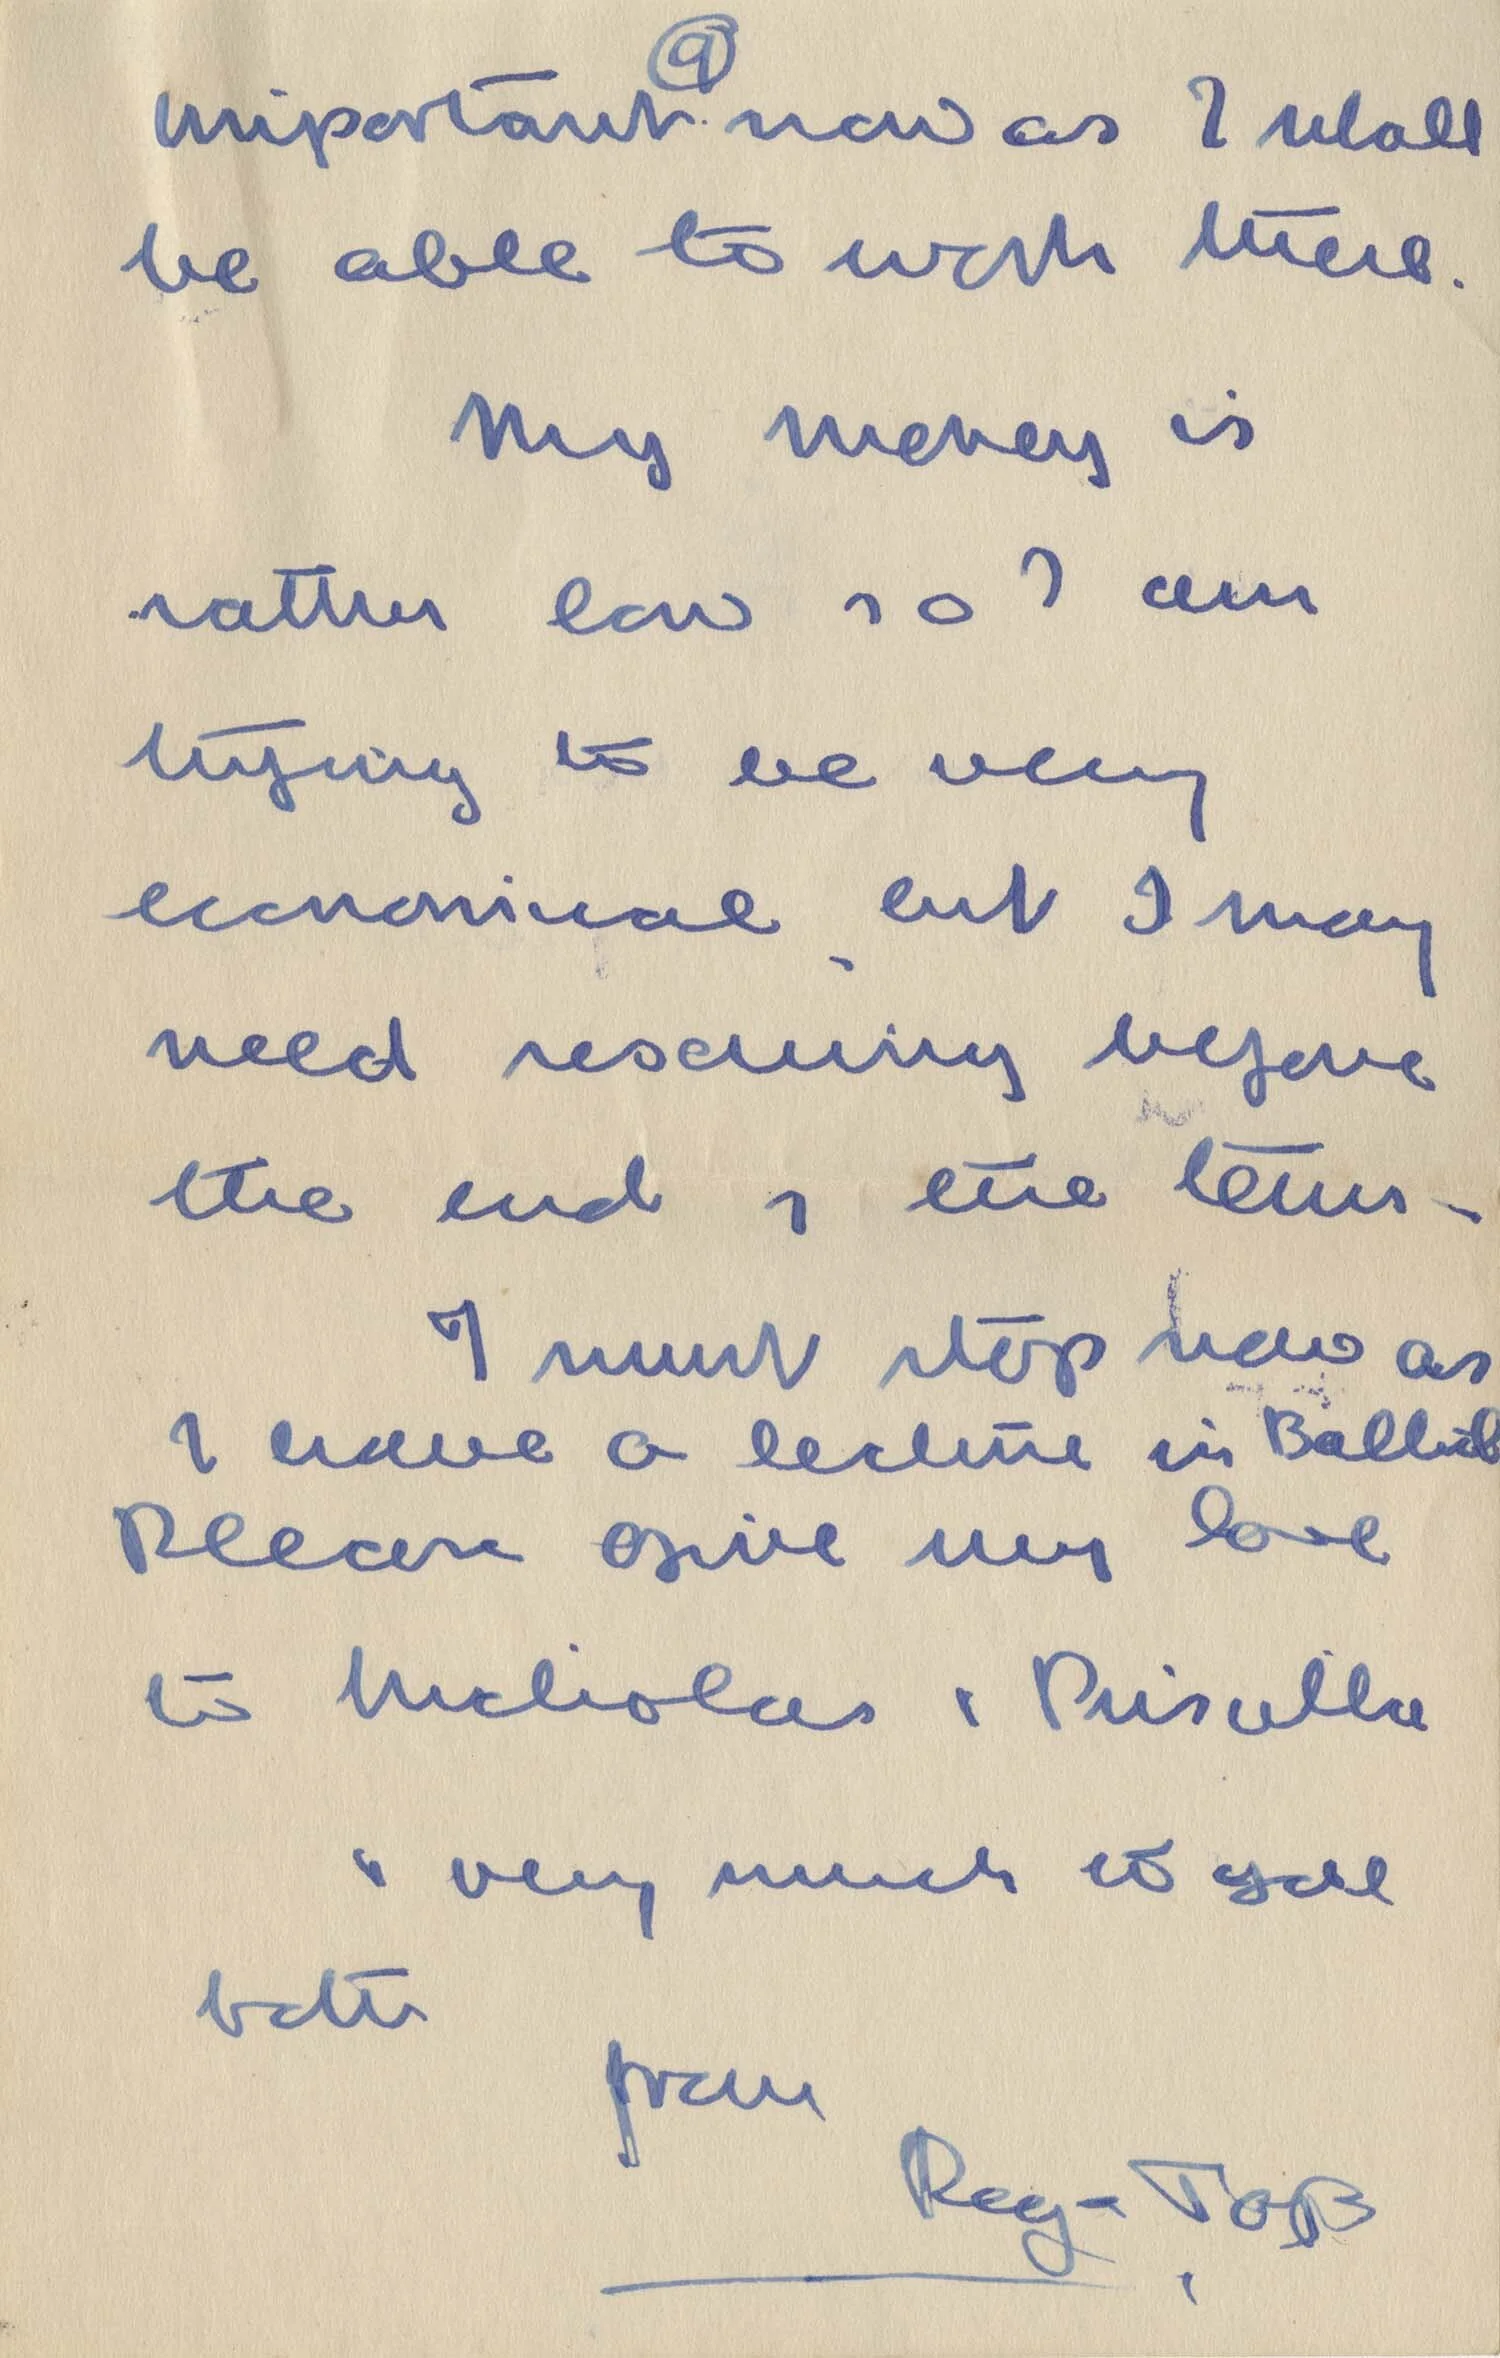 9
important now as I shall
be able to work there.
My money is
rather low so I am
trying to be very
economical, but I may
need rescuing before
the end of the term -
I must stop now as
I have a lecture in Balliol
Please give my love
to Nicholas & Priscilla
& very much to you
both
from